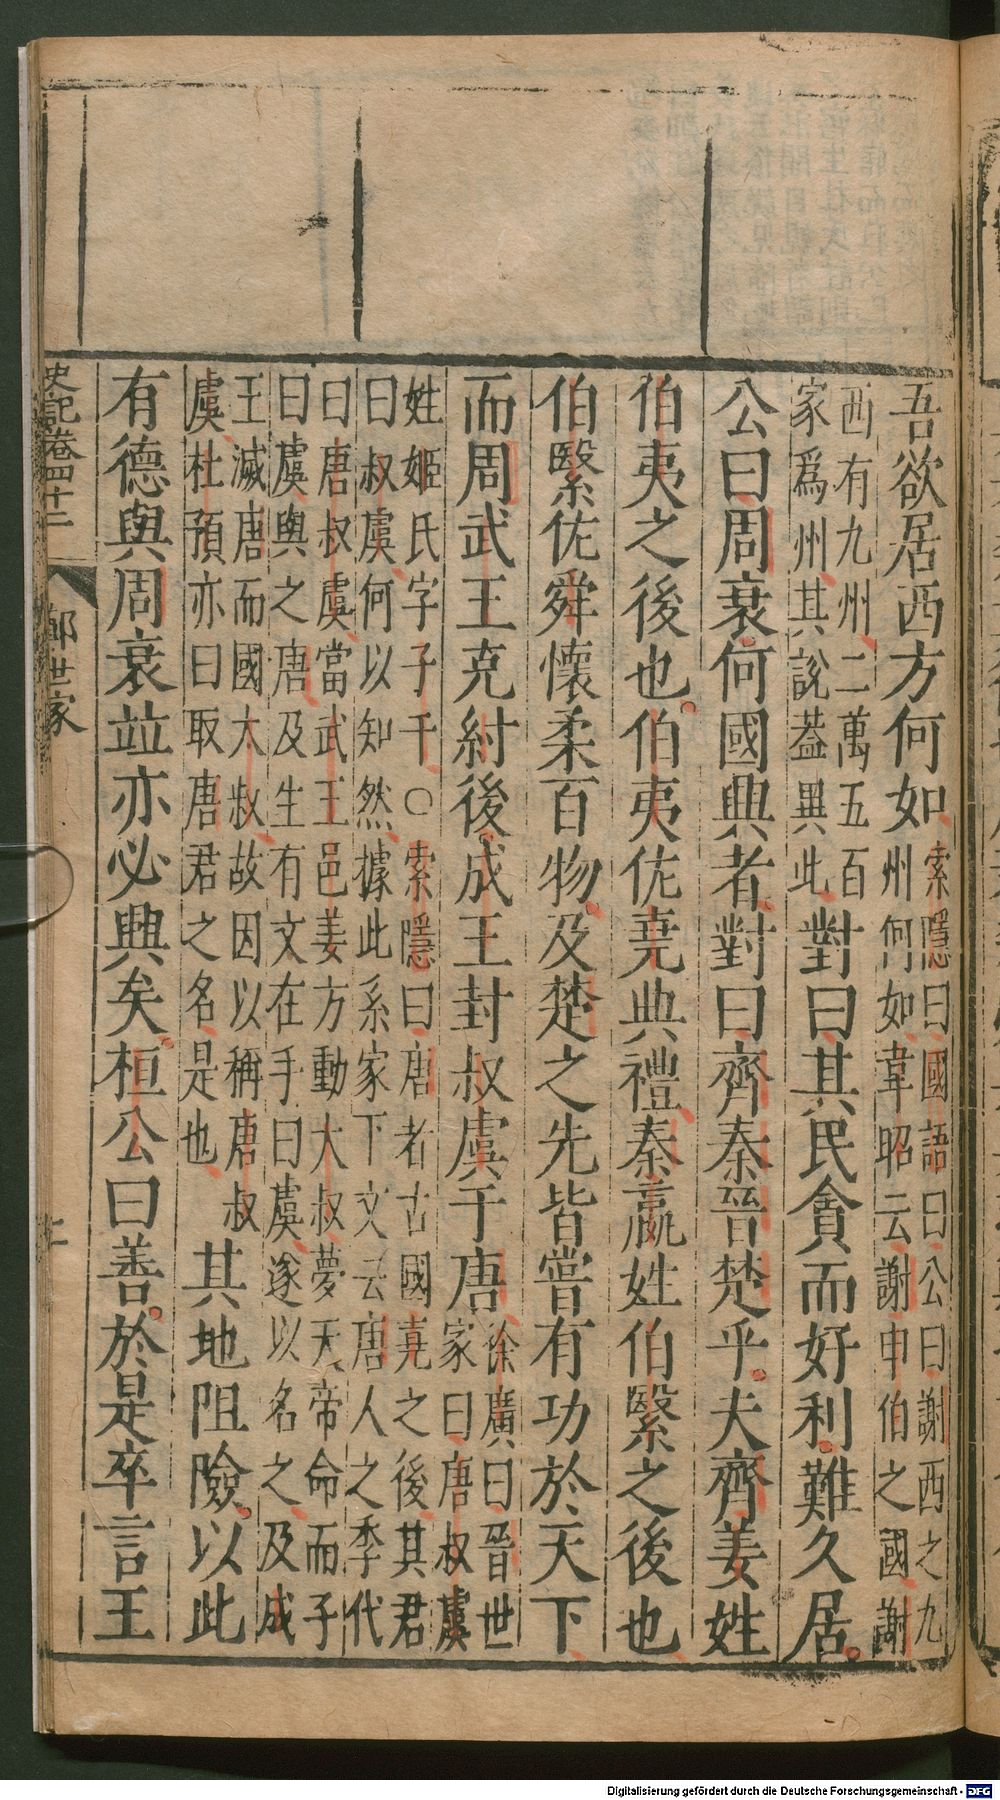 吾欲居西方何如索隱曰國語曰公曰謝西之九
州何如韋昭云謝申伯之國謝
西有九州二萬五百
家爲州其說葢異此對曰其民貪而好利難久居
公曰周衰何國興者對曰齊秦晉楚乎夫齊姜姓
伯夷之後也伯夷佐堯典禮秦嬴姓伯繄之後也
伯繄佐舜懷柔百物及楚之先皆嘗有功於天下
而周武王克紂後成王封叔虞于唐徐廣曰晉世
家曰唐叔虞
姓姬氏字子千○索隱曰唐者古國堯之後其君
曰叔虞何以知然據此系家下文云唐人之季代
曰唐叔虞當武王邑姜方動大叔夢天帝命而子
曰虞與之唐及生有文在手曰虞遂以名之及成
王滅唐而國大叔故因以稱唐叔
虞杜預亦曰取唐君之名是也其地阻險以此
有德與周衰竝亦必興矣桓公曰善於是卒言王
史記卷四十二 鄭世家
Digitalisierung gefördert durch die Deutsche Forschungsgemeinschaft - DFG